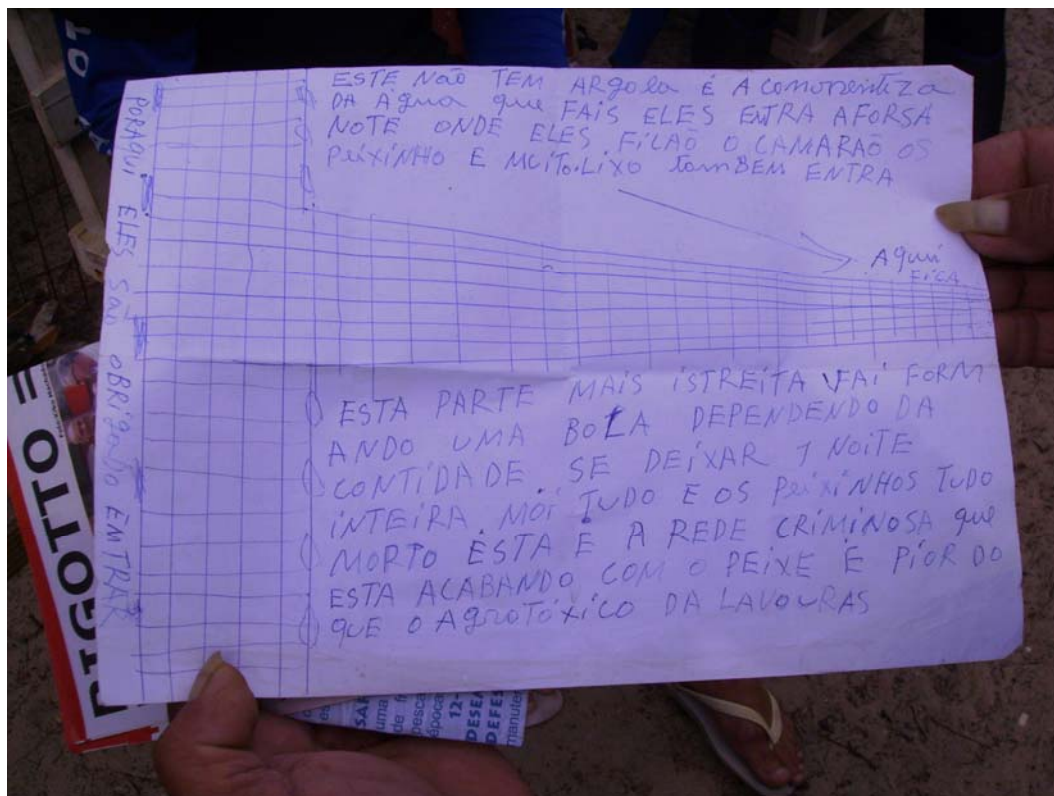 ESTE NÃO TEM ARgola É A comorenteza
DA Agua que FAIS ELES ENTRA AFORSA
NOTE ONDE ELES FICAÕ O CAMARAÕ OS
PeiXINHO E MUiTO.LiXO tamBEM ENTRA
AQui
FiCA
PORAQUI ELES SÃO OBRIGADO ENTRAR
ESTA PARTE MAIS iSTREiTA VAi FORM
ANDO UMA BOLA DEPENDENDO DA
CONTiDADE. SE DEiXAR 1 NOiTE
iNTEiRA. MOi TUDO E OS PeixiNHOS TUDO
MORTO ESTA E A REDE CRIMINOSA que
ESTA ACABANDO COM O PEiXE E PiOR DO
QUE O AgroTóxico DA LAVOURAS
RIGOTTO =
OT
pesca
época
12-
DESE
DEFES
manute